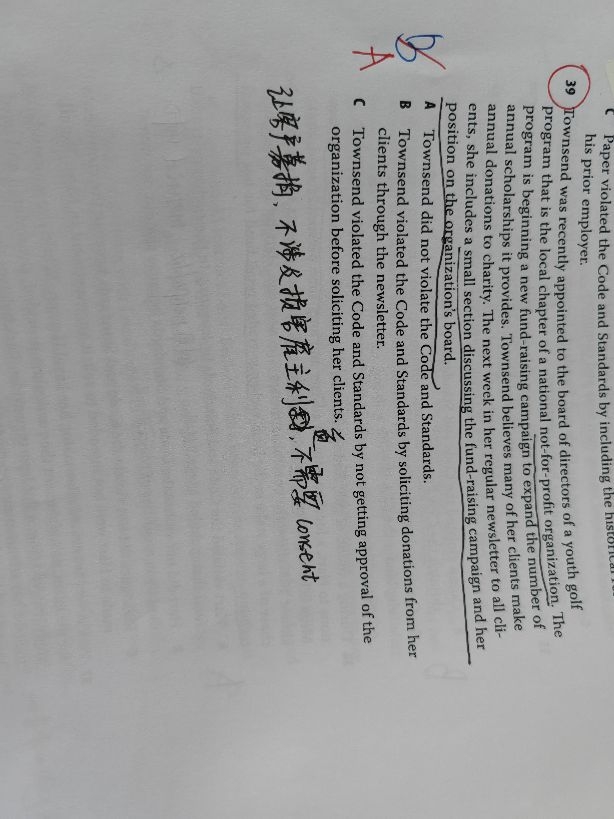 C Paper violated the Code and Standards by including the historical
his prior employer.
39 Townsend was recently appointed to the board of directors of a youth golf
program that is the local chapter of a national not-for-profit organization. The
program is beginning a new fund-raising campaign to expand the number of
annual scholarships it provides. Townsend believes many of her clients make
annual donations to charity. The next week in her regular newsletter to all cli-
ents, she includes a small section discussing the fund-raising campaign and her
position on the organization's board.
A Townsend did not violate the Code and Standards.
B Townsend violated the Code and Standards by soliciting donations from her
clients through the newsletter.
C Townsend violated the Code and Standards by not getting approval of the
organization before soliciting her clients.
B
A
让客户募捐,不涉及损害雇主利益,不需要 consent